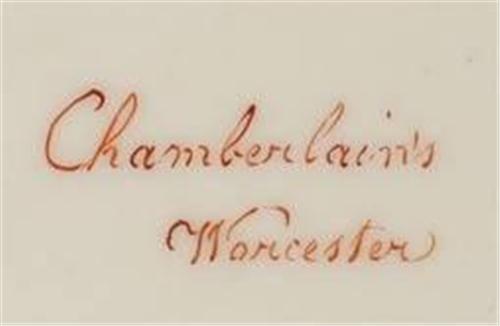 Chamberlain's
Worcester